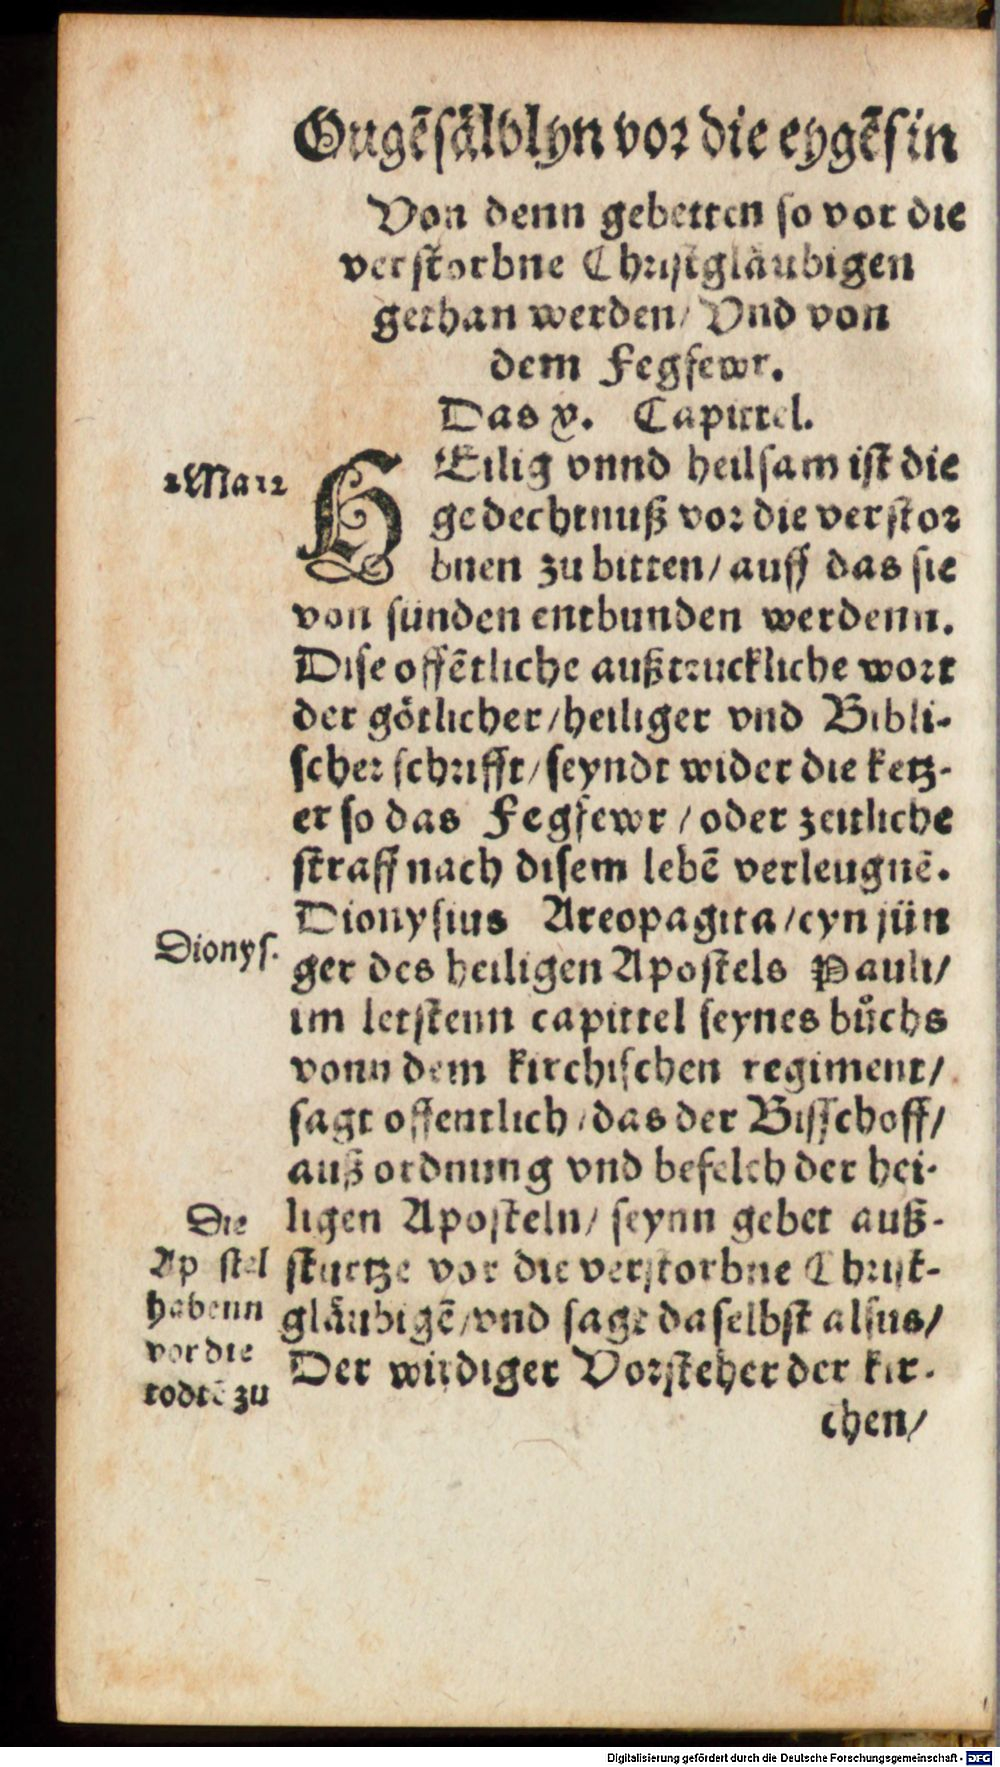 Ougẽsälblyn vor die eygẽsin
Von denn gebetten so vor die
verstorbne Christgläubigen
gethan werden/ Vnd von
dem Fegfewr.
Das v. Capittel.
2 Ma 12
HEilig vnnd heilsam ist die
gedechtnuß vor die verstor
bnen zu bitten/ auff das sie
von sünden entbunden werdenn.
Dise offẽtliche außtruckliche wort
der götlicher/heiliger vnd Bibli-
scher schrifft/seyndt wider die ketz-
er so das Fegfewr/oder zeitliche
straff nach disem lebẽ verleugnẽ.
Dionys.
Dionysius Areopagita/eyn jün
ger des heiligen Apostels Pauli/
im letstenn capittel seynes bůchs
vonn dem kirchischen regiment/
sagt offentlich/das der Bisschoff/
auß ordnung vnd befelch der hei-
ligen Aposteln/ seynn gebet auß-
stürtze vor die verstorbne Christ-
gläubigẽ/vnd sagt daselbst alsus/
Der wirdiger Vorsteher der kir-
Die
Apostel
habenn
vor die
todtẽ zu
chen/
Digitalisierung gefördert durch die Deutsche Forschungsgemeinschaft - DFG